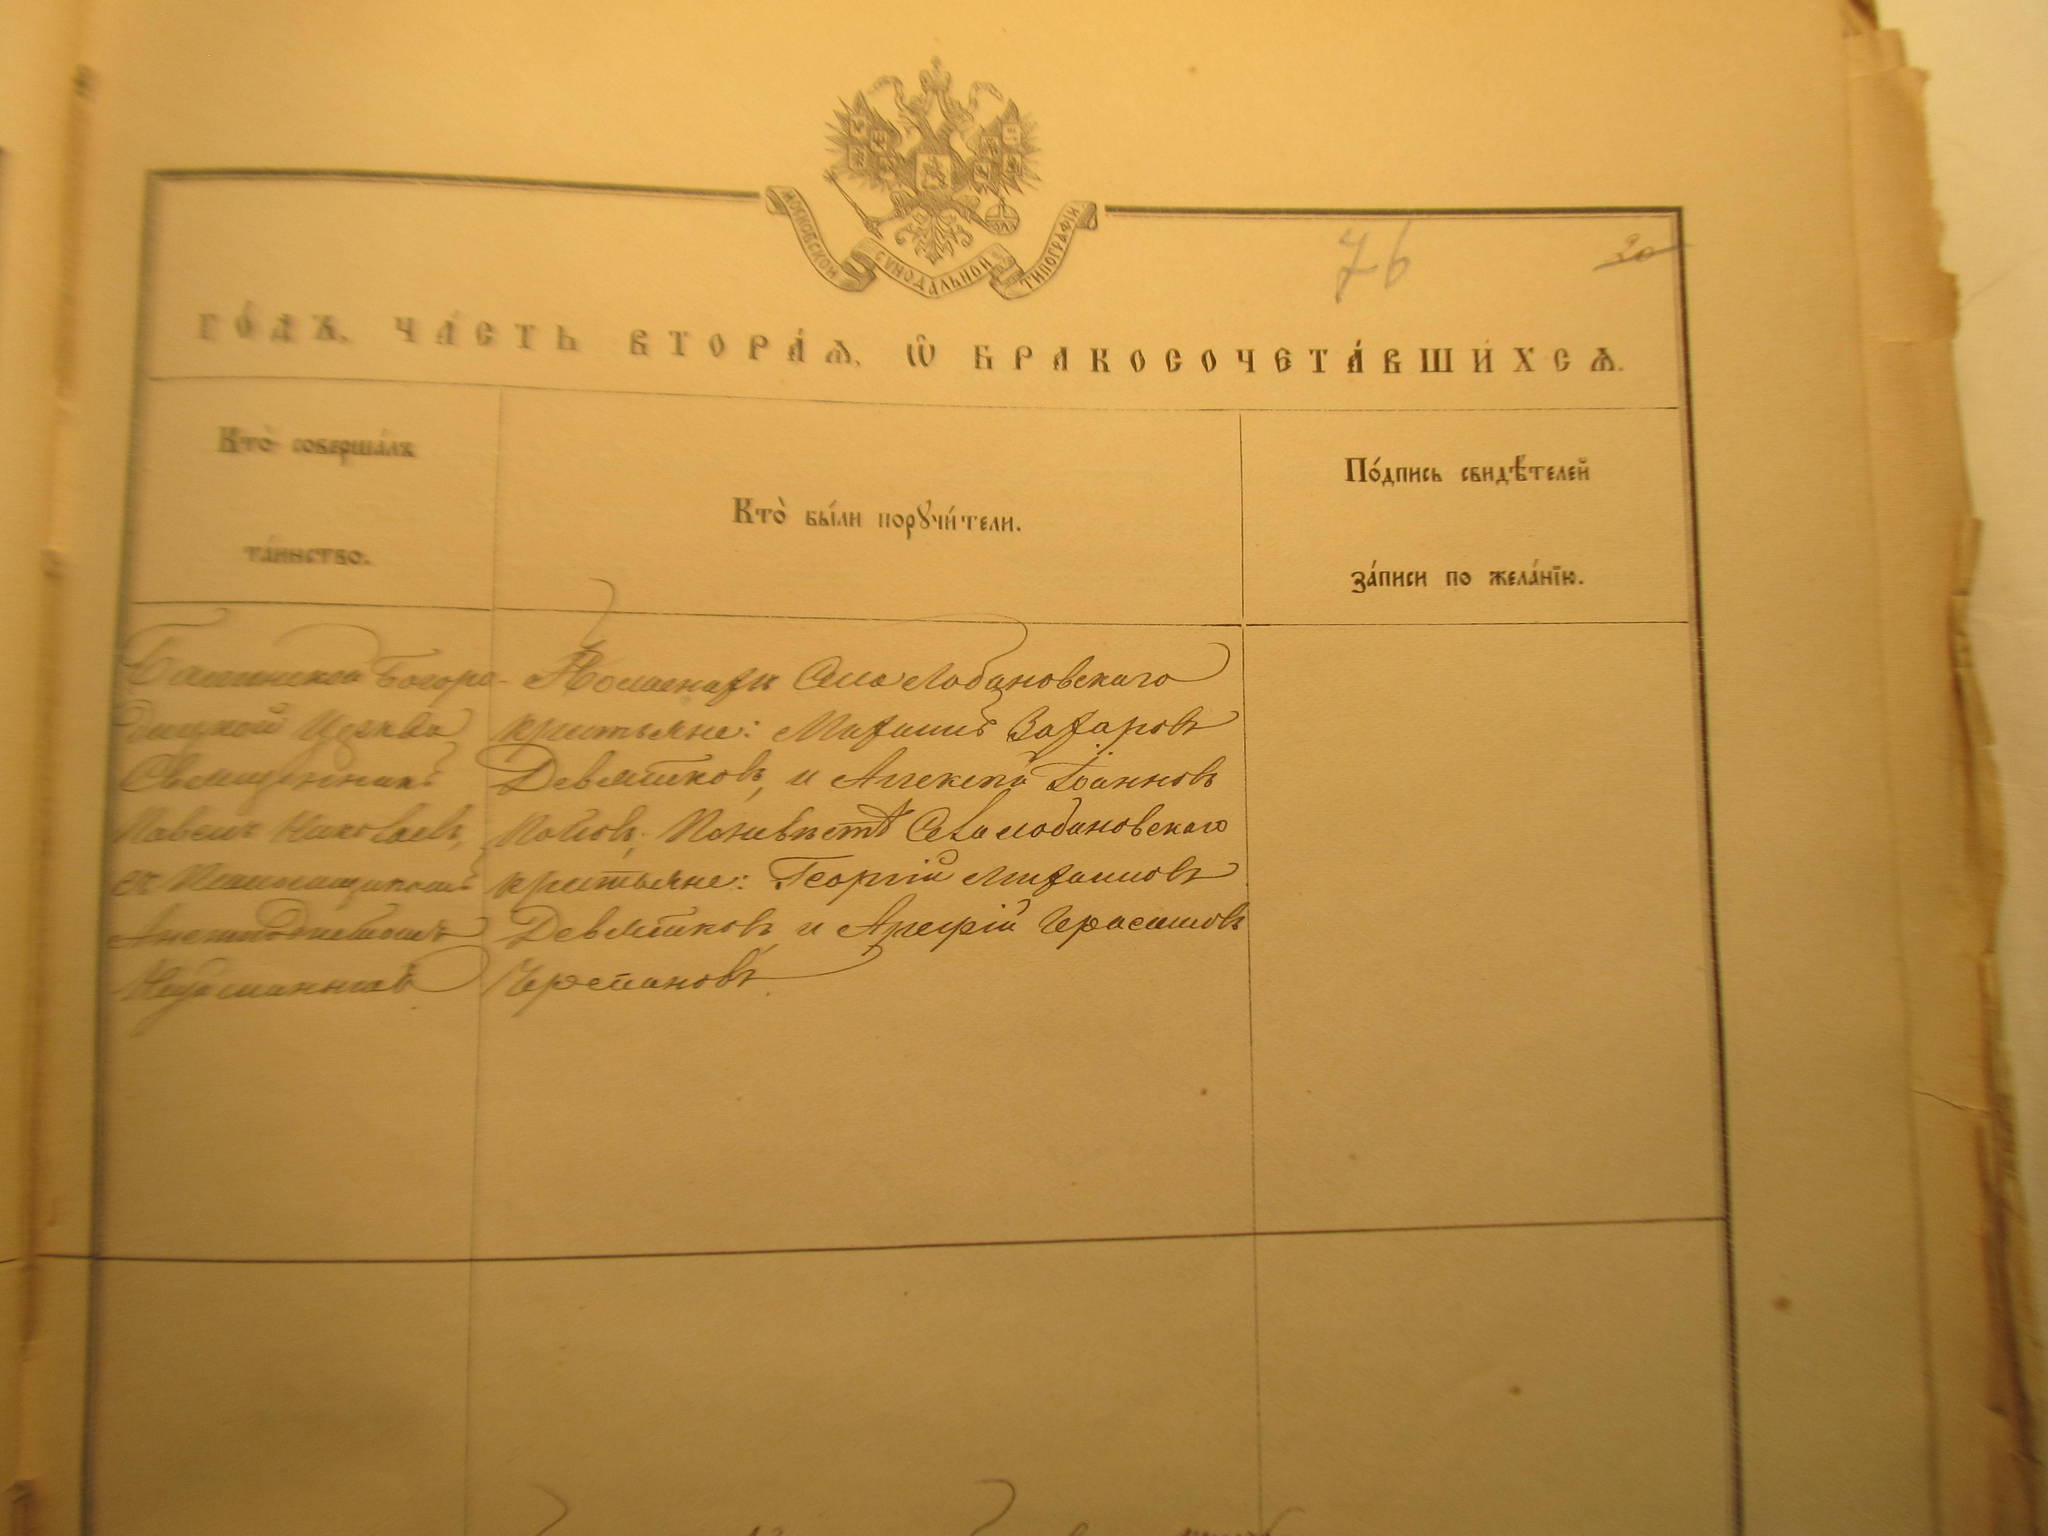 МОСКОВСКОЙ СѴНОДАЛЬНОЙ ТИПОГРАФІИ
76
30
ГО́ДЪ, ЧА́СТЬ ВТОРА́Ѧ, Ѽ БРАКОСОЧЕТА́ВШИХСѦ.
Кто̀ соверша́лъ
та́инство.
Кто̀ бы́ли порꙋчи́тели.
По́дпись свидѣ́телей
за́писи по жела́нїю.
Богоро-
дицкой Церкви
Священникъ
Павелъ Николаевъ,
съ Псаломщикомъ
По женихѣ Села Лобановскаго
крестьяне: Михаилъ Захаровъ
Девятковъ, и Алексѣй Іоанновъ
Поповъ; По невѣстѣ Села Лобановскаго
крестьяне: Георгій Михаиловъ
Девятковъ и Арефій Герасимовъ
Черепановъ.